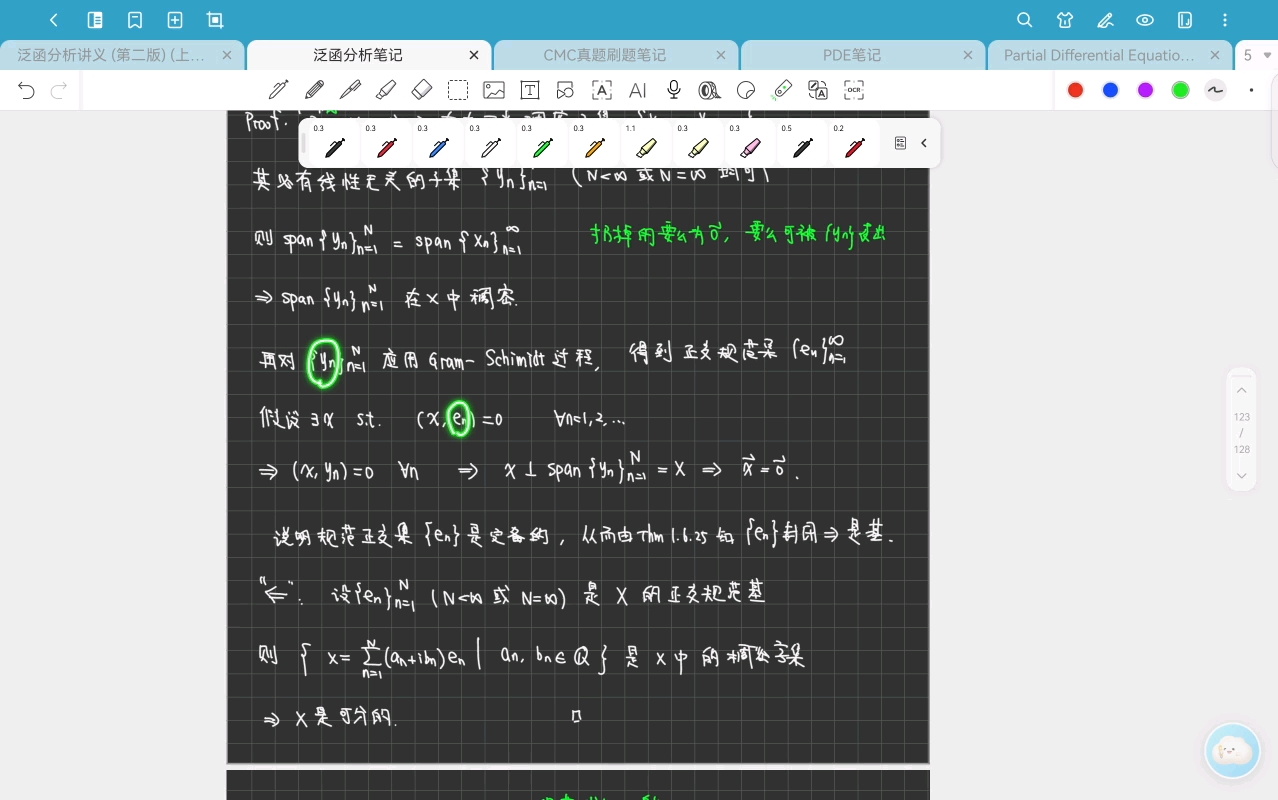 泛函分析讲义 (第二版) (上... × 泛函分析笔记 × CMC真题刷题笔记 × PDE笔记 × Partial Differential Equatio... × 5
T A AI OCR
Proof.
0.3 0.3 0.3 0.3 0.3 0.3 1.1 0.3 0.3 0.5 0.2
其必有线性无关的子集 {yn}n=1 (N<∞ 或 N=∞ 均可)
则 span{yn}_{n=1}^{N} = span{xn}_{n=1}^{∞} 扔掉的要么为0⃗, 要么可被{yn}表出
⇒ span{yn}_{n=1}^{N} 在 X 中稠密.
再对 {yn}_{n=1}^{N} 应用 Gram-Schmidt 过程, 得到正交规范集 {en}_{n=1}^{∞}
假设 ∃x s.t. (x, en)=0 ∀n=1,2,...
⇒ (x, yn)=0 ∀n ⇒ x ⊥ span{yn}_{n=1}^{N} = X ⇒ x⃗=0⃗.
说明规范正交集 {en} 是完备的, 从而由 Thm 1.6.25 知 {en} 封闭 ⇒ 是基.
"⇐". 设{en}_{n=1}^{N} (N<∞ 或 N=∞) 是 X 的正交规范基
则 { x= ∑_{n=1}^{N}(an+ibn)en | an, bn∈ℚ } 是 X 中的稠子集
⇒ X 是可分的. □
123
/
128